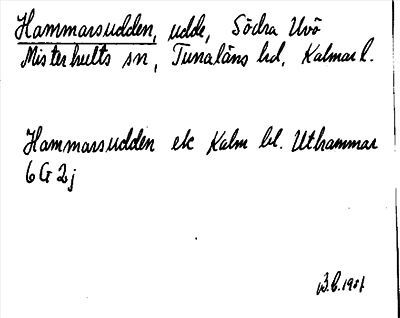 Hammarsudden, udde, Södra Uvö
Misterhults sn, Tunaläns hd, Kalmar l.
Hammarsudden ek Kalm bl. Uthammar
6 G 2j
B.C. 1981